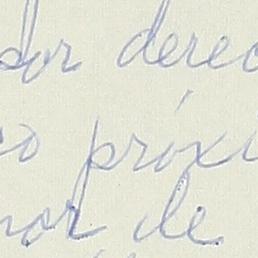 dor derec
co próxi
nor de